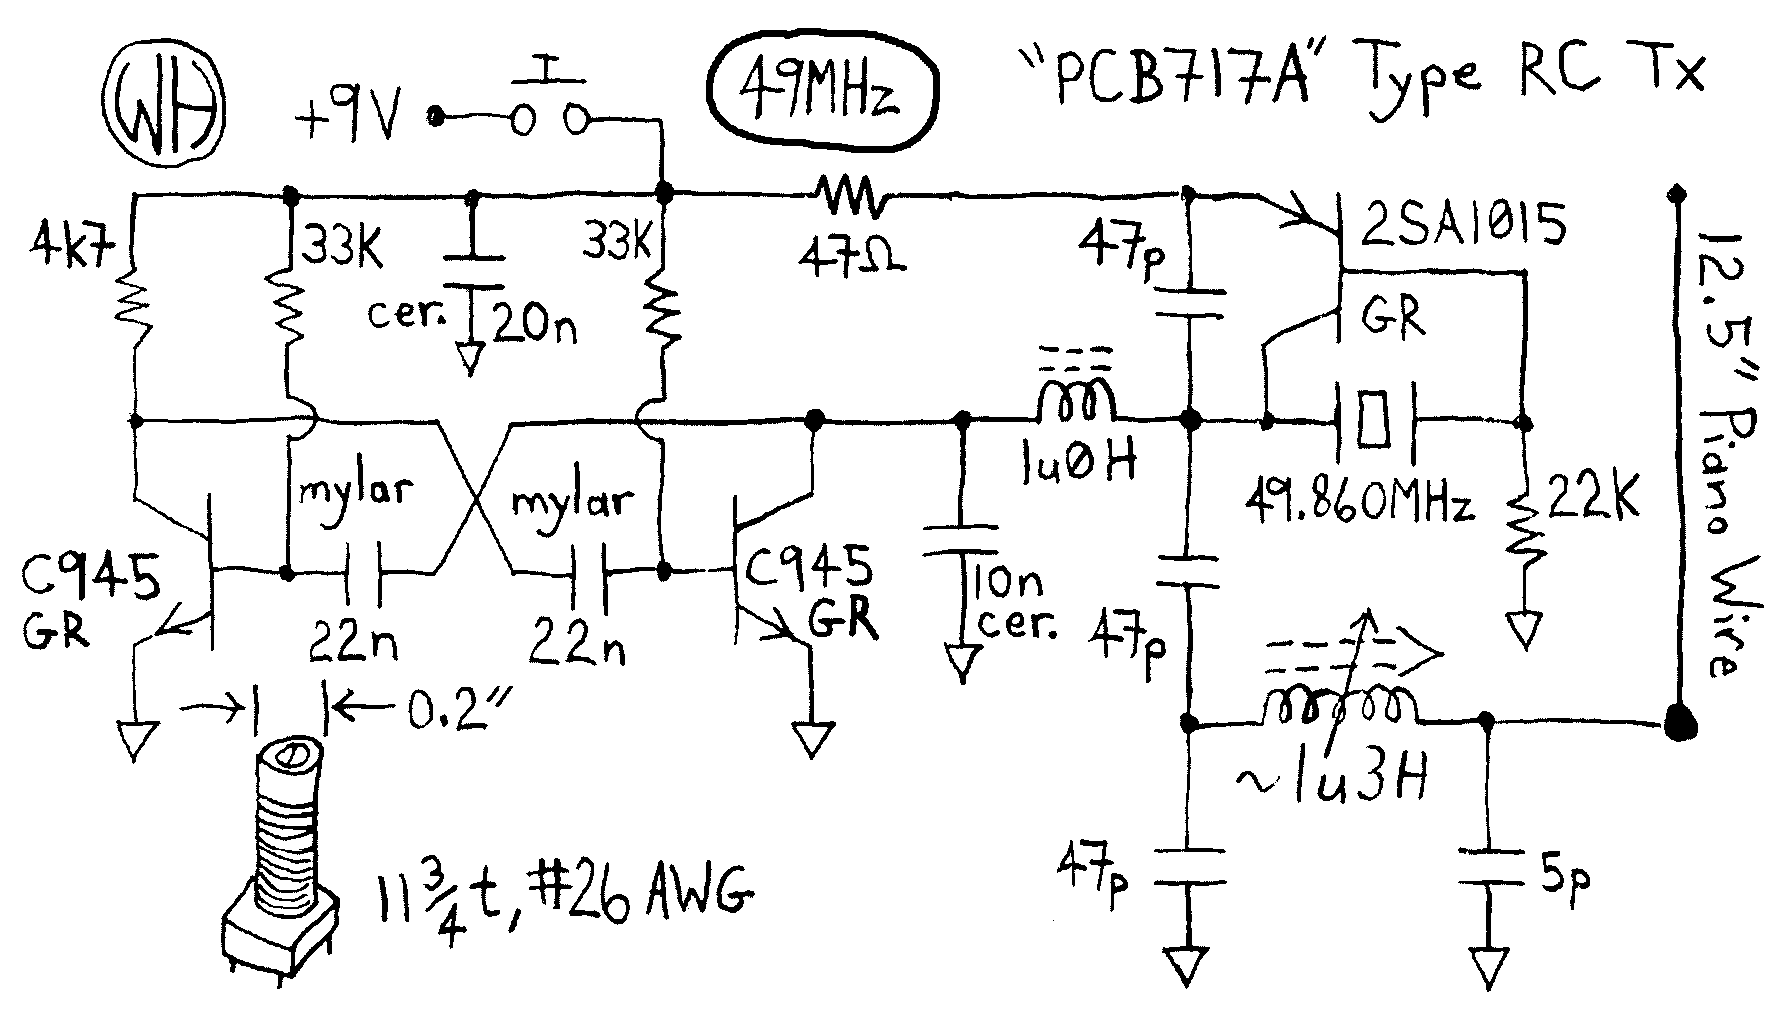 WH
+9V
49MHz
"PCB717A" Type RC Tx
4k7
33K
cer.
20n
33K
47Ω
47p
2SA1015
GR
12.5" Piano Wire
1u0H
49.860MHz
22K
mylar
mylar
C945
GR
22n
22n
C945
GR
10n
cer.
47p
~1u3H
0.2"
11 3/4 t, #26 AWG
47p
5p